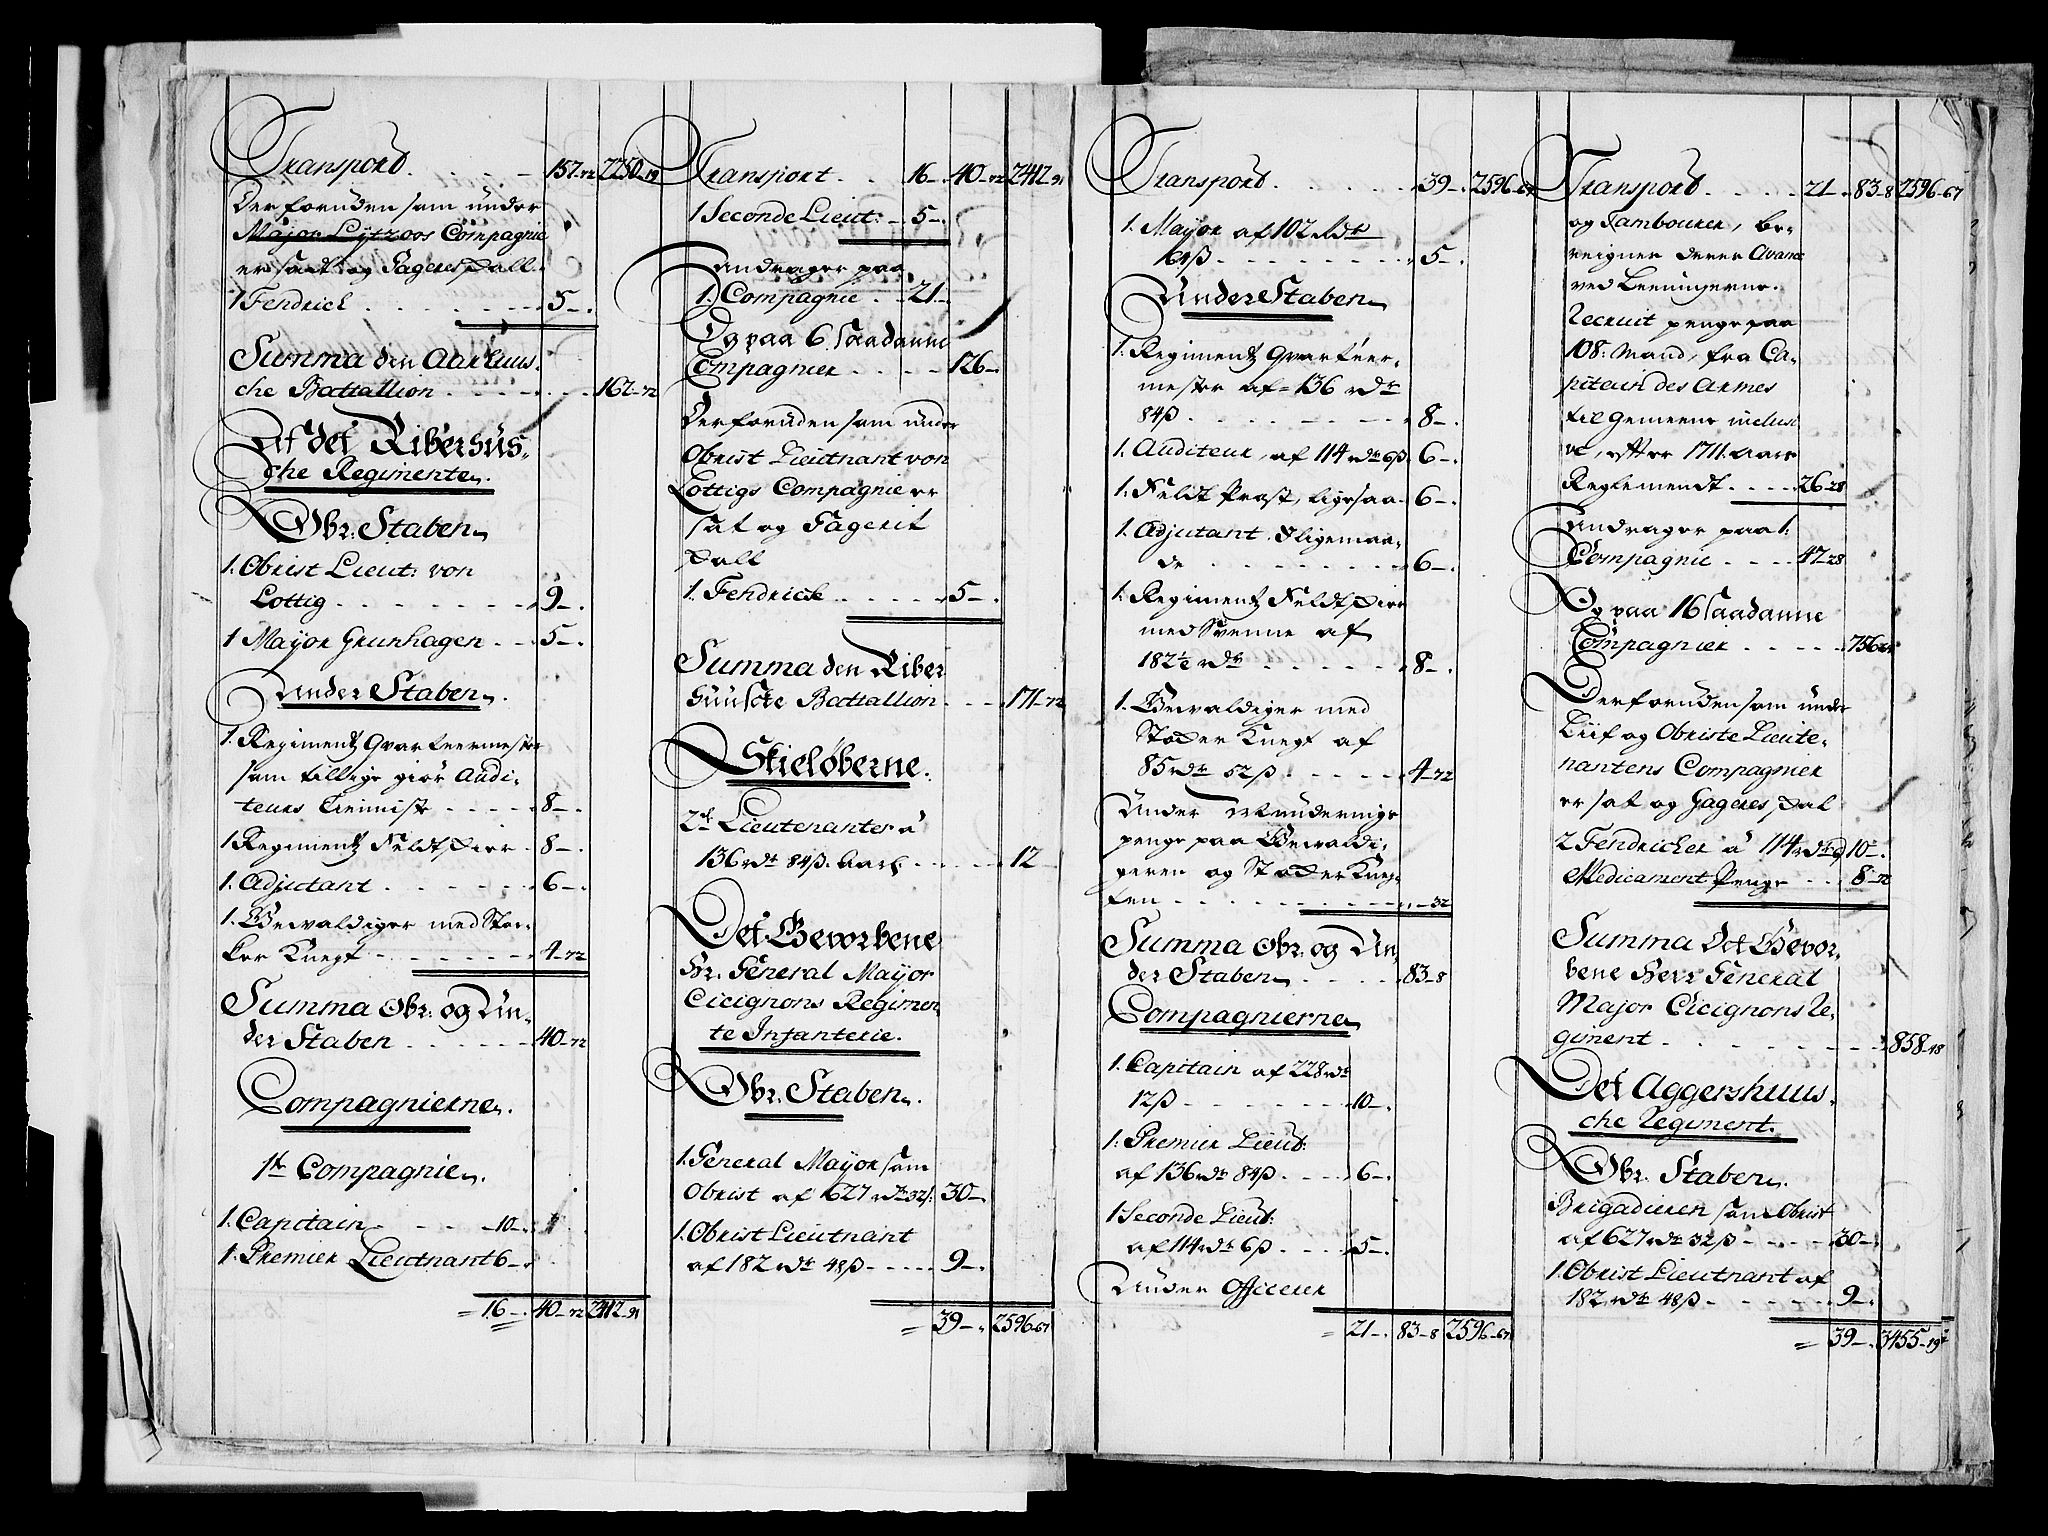 Transpord. . . . . 157-72 2250-19
Derforuden som under
Major Lÿtzoos Compagnie
er sadt og Gageres pall.
1 Fendrick . . . . . 5-.
Summa den Aarhuus-
che Battallion . . . . . 162-72
Af det Ribershus-
che Regimente.
Obr: Staben
1. Obrist Lieut: von
Lottig . . . . . 9-.
1 Mayor Grunhagen . . 5-.
Under Staben.
1. Regimentz Qvarteermester
som tillige giør Audi-
teurs Tienniste . . . . 8-.
1 Regimentz Feldtskier . 8-.
1. Adjutant . . . . . 6-.
1. Gevaldiger med Stor-
ker Knegt . . . . . 4-72
Summa Obr: og Un-
der Staben . . . . . 40-72
Compagnierne.
1te Compagnie.
1. Capitain . . . . 10-.
1. Premier Lieutnant 6-.
= 16-. 40-72 2412-91
Transport . . 16-. 40-72 2412-91
1 Seconde Lieut: . 5-.
Andrager paa
1. Compagnie . . 21-
Og paa 6 saadanne
Compagnier . . . . 126-
Derforuden som under
Obrist Lieutnant von
Lottigs Compagnie er
sat og Gagerit
pall
1. Fendrick . . . . 5-.
Summa den Riber
huusche Battallion . . . 171-72
Skieløberne.
2de Lieutenanter á
136 rdr 84 ß. Aarl. . . . . 12
Det Gevorbene
Hr. General Mayor
Cicignons Regimen-
te Infanterie.
Obr: Staben.
1. General Mayor som
Obrist af 627 rdr 32 ß: 30-.
1. Obrist Lieutnant
af 182 rdr 48 ß . . . . . 9-.
= 39-. 2596-67
Transpord . . . . . 39-. 2596-67
1. Mayor af 102 Rdr
64 ß . . . . . 5-.
Under Staben
1. Regimentz Qvarteer-
mester af = 136 rdr
84 ß . . . . . 8-.
1. Auditeur, af 114 rdr 6 ß. 6-.
1. Feldt Præst, ligesaa . 6-.
1. Adjutant . Ligemaa-
de . . . . . 6-.
1. Regimentz Feldtskier
med Svenne af
182½ rdr . . . . . 8-.
1. Gevaldiger med
Stocker Knegt af
85 rdr 52 ß . . . . . 4-72
Under
penge paa Gevaldi-
geren og Stocker Kneg-
ten . . . . . -32
Summa Obr: og Un
der Staben . . . . . 83-8
Compagnierne
1. Capitain af 228 rdr
12 ß . . . . . 10-.
1. Premier Lieut:
af 136 rdr 84 ß . . . . 6-.
1 Seconde Lieut:
af 114 rdr 6 ß . . . . 5-.
Under Officerer
= 21-. 83-8 2596-67
Transpord . . . . 21-. 83-8 2596-67
og Tambourer, be-
reigner derer Avance
ved Leeningerne.
Recruit penge paa
108: Mand, fra Ca-
pitain des Armes
til Gemeene inclusi
ve, efter 1711. Aars
Reglemendt . . . . 26-28
Andrager paa 1.
Compagnie . . . . 47-28
Og paa 16 saadanne
Compagnier . . . . 756-64
Derforuden som under
Liif og Obriste Lieute-
nantens Compagnier
er sat og Gageres pal
2 Fendricher á 114 rdr 6 10-.
Medicament Penge . . . 8-72
Summa det Gevor-
bene Herr General
Major Cicignons Re-
giment . . . . . 858-48
Det Aggershuus-
che Regiment.
Obr. Staben.
Brigadieren som Obrist
af 627 rdr 32 ß . . . . 30-.
1. Obrist Lieutnant af
182 rdr 48 ß . . . . . 9-.
= 39-. 3455-19